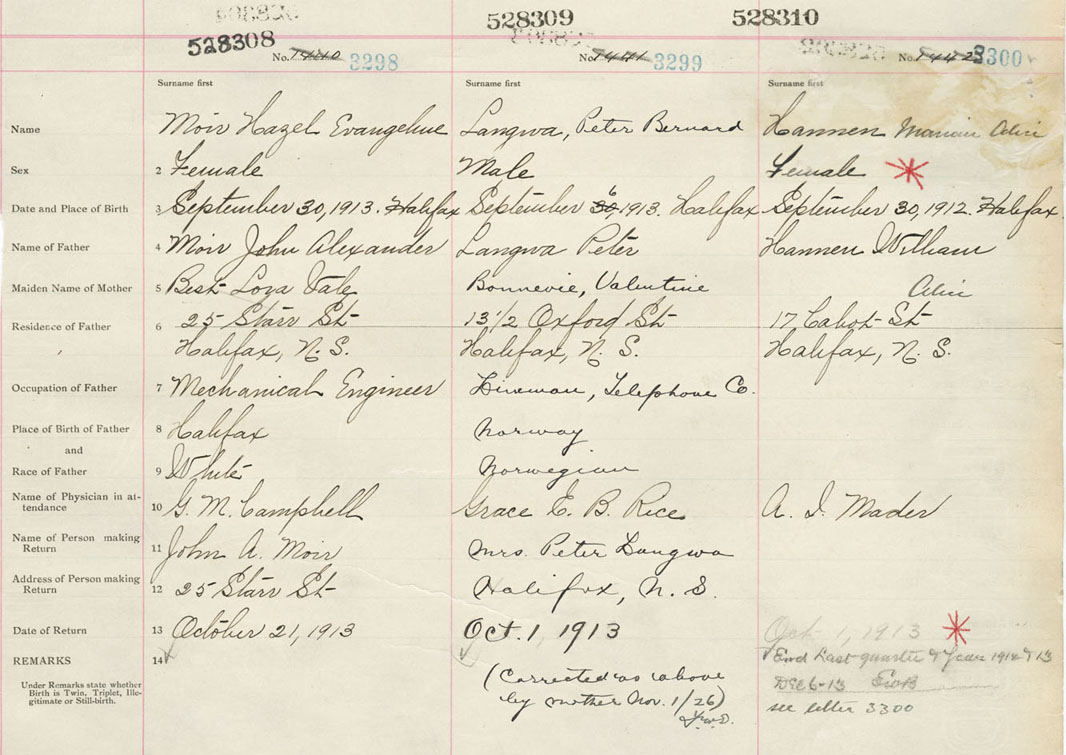 528308 528309 528310
No. 3298 No. 3299 No. 3300
Surname first Surname first Surname first
Name Moir Hazel Evangeline Langwa, Peter Bernard Hannen Marian
Sex 2 Female Male Female
Date and Place of Birth 3 September 30, 1913. Halifax September 30, 6 1913. Halifax September 30, 1912. Halifax.
Name of Father 4 Moir John Alexander Langwa Peter Hannen William
Maiden Name of Mother 5 Best Loza Vale Bonnevie, Valentine
Residence of Father 6 25 Starr St 13 1/2 Oxford St 17 Cabot St
Halifax, N. S. Halifax, N. S. Halifax, N. S.
Occupation of Father 7 Mechanical Engineer Lineman, Telephone Co.
Place of Birth of Father 8 Halifax Norway
and
Race of Father 9 White Norwegian
Name of Physician in at-
tendance 10 G. M. Campbell Grace E. B. Rice A. I. Mader
Name of Person making
Return 11 John A. Moir Mrs. Peter Langwa
Address of Person making
Return 12 25 Starr St Halifax, N. S.
Date of Return 13 October 21, 1913 Oct. 1, 1913 Oct 1, 1913
REMARKS 14 End Last quarter & Year 1912 & 13
Under Remarks state whether
Birth is Twin, Triplet, Ille-
gitimate or Still-birth.
(Corrected as above
by mother Nov. 1/26)
Dec 6-13
see letter 3300